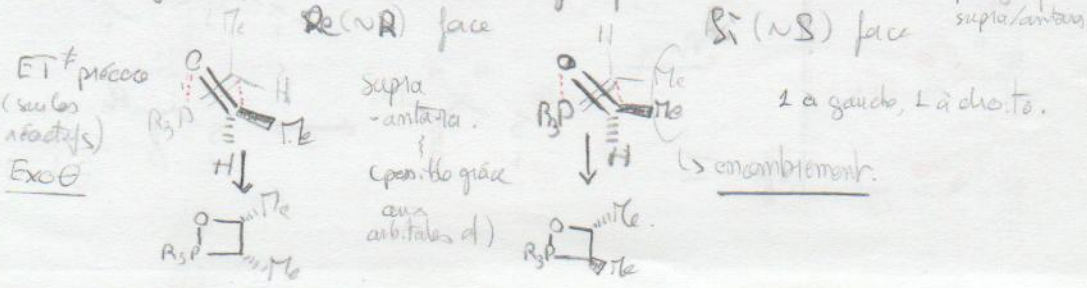 Re (~R) face
Si (~S) face
supra/antara
ET≠ précoce
(sur les
réactifs)
Exoθ
Me
O
H
R₃P
Me
H
supra
-antara.
(possible grâce
aux
orbitales d)
H
O
Me
R₃P
Me
H
1 à gauche, 1 à droite.
↳ encombrement.
O
Me
R₃P
Me
O
Me.
R₃P
Me